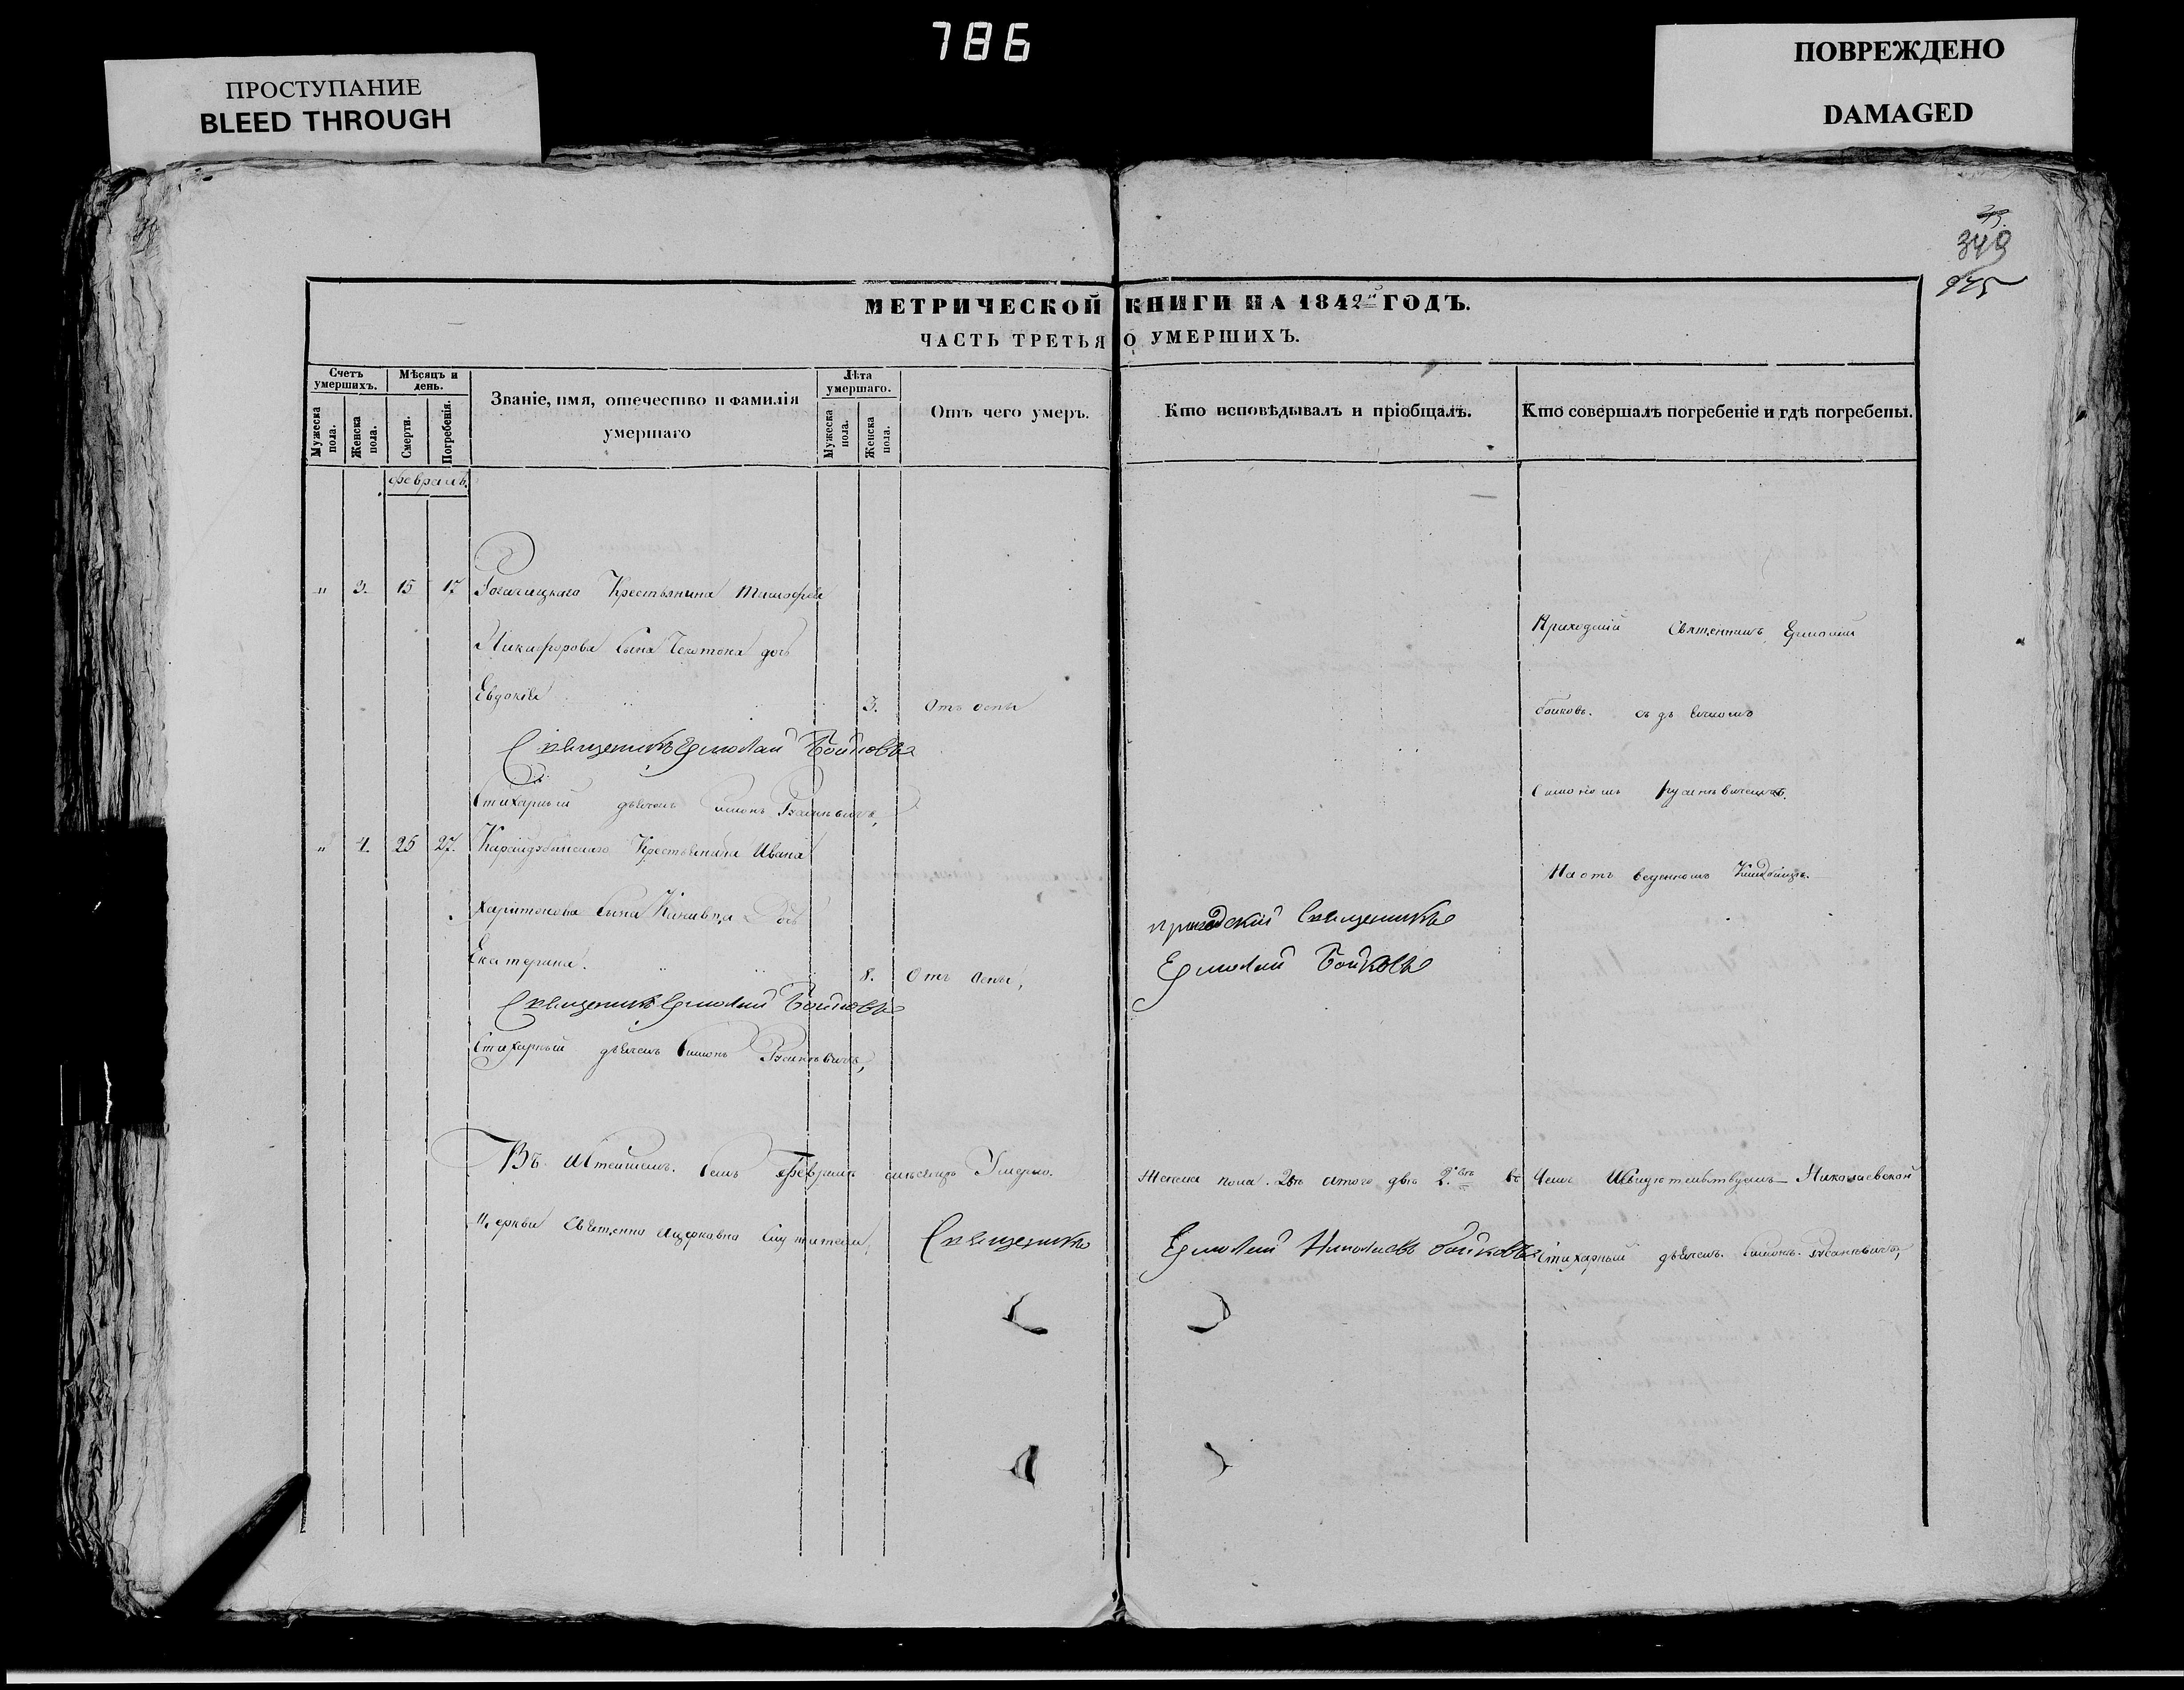 786
ПРОСТУПАНИЕ
BLEED THROUGH
ПОВРЕЖДЕНО
DAMAGED
349
МЕТРИЧЕСКОЙ КНИГИ НА 1842й ГОДЪ.
ЧАСТЬ ТРЕТЬЯ О УМЕРШИХЪ.
Счетъ умершихъ.
Мужеска пола.
Женска пола.
Мѣсяцъ и день.
Смерти.
Погребенія.
Званіе, имя, отечество и фамилія умершаго
Лѣта умершаго.
Мужеска пола.
Женска пола.
Отъ чего умеръ.
Кто исповѣдывалъ и пріобщалъ.
Кто совершалъ погребеніе и гдѣ погребены.
февраль.
" 3. 15 17 Рогачицкаго Крестьянина
Никифорова сына дочь
Евдокія 3. Отъ оспы
Священникъ Ермолай Бойковъ
Стихарный дьячокъ Симонъ
Приходскій Священникъ Ермолай
Бойковъ. съ дьячкомъ
Симономъ
На отведенномъ Кладбищѣ.
" 4. 25 27. Крестьянина Ивана
Харитонова сына дочь
Екатерина. 8. Отъ оспы,
Священникъ Ермолай Бойковъ
Стихарный дьячокъ Симонъ
приходскій Священникъ
Ермолай Бойковъ
Въ семъ Февралѣ мѣсяцѣ Умерло. Женска пола. двѣ 2. въ Чемъ Свидѣтельствуемъ Николаевской
Церкви Священно Ицерковно Служители, Священникъ Ермолай Николаевъ Бойковъ Стихарный дьячокъ Симонъ